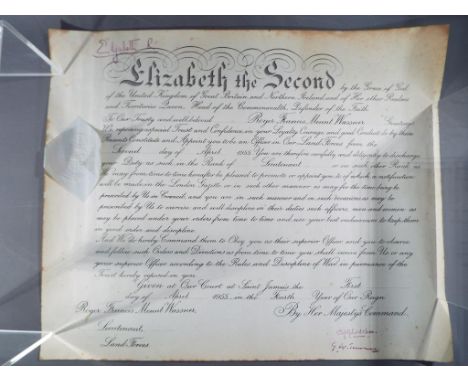 Elizabeth R
Elizabeth the Second by the Grace of God
of the United Kingdom of Great Britain and Northern Ireland and of Her other Realms
and Territories Queen, Head of the Commonwealth, Defender of the Faith.
To Our Trusty and well-beloved Roger Francis Mount Wassner Greeting:
We, reposing especial Trust and Confidence in your Loyalty, Courage, and good Conduct, do by these
Presents Constitute and Appoint you to be an Officer in Our Land Forces from the
Second day of April 1955. You are therefore carefully and diligently to discharge
your Duty as such in the Rank of Lieutenant or in such other Rank as
We may from time to time hereafter be pleased to promote or appoint you to, of which a notification
will be made in the London Gazette, or in such other manner as may for the time being be
prescribed by Us in Council, and you are in such manner and on such occasions as may be
prescribed by Us to exercise and well discipline in their duties such officers, men and women as
may be placed under your orders from time to time and use your best endeavours to keep them
in good order and discipline.
And We do hereby Command them to Obey you as their superior Officer and you to observe
and follow such Orders and Directions as from time to time you shall receive from Us, or any
your superior Officer, according to the Rules and Discipline of War, in pursuance of the
Trust hereby reposed in you.
Given at Our Court, at Saint James's, the First
day of April 1955, in the Fourth Year of Our Reign
Roger Francis Mount Wassner By Her Majesty's Command.
Lieutenant,
Land Forces.